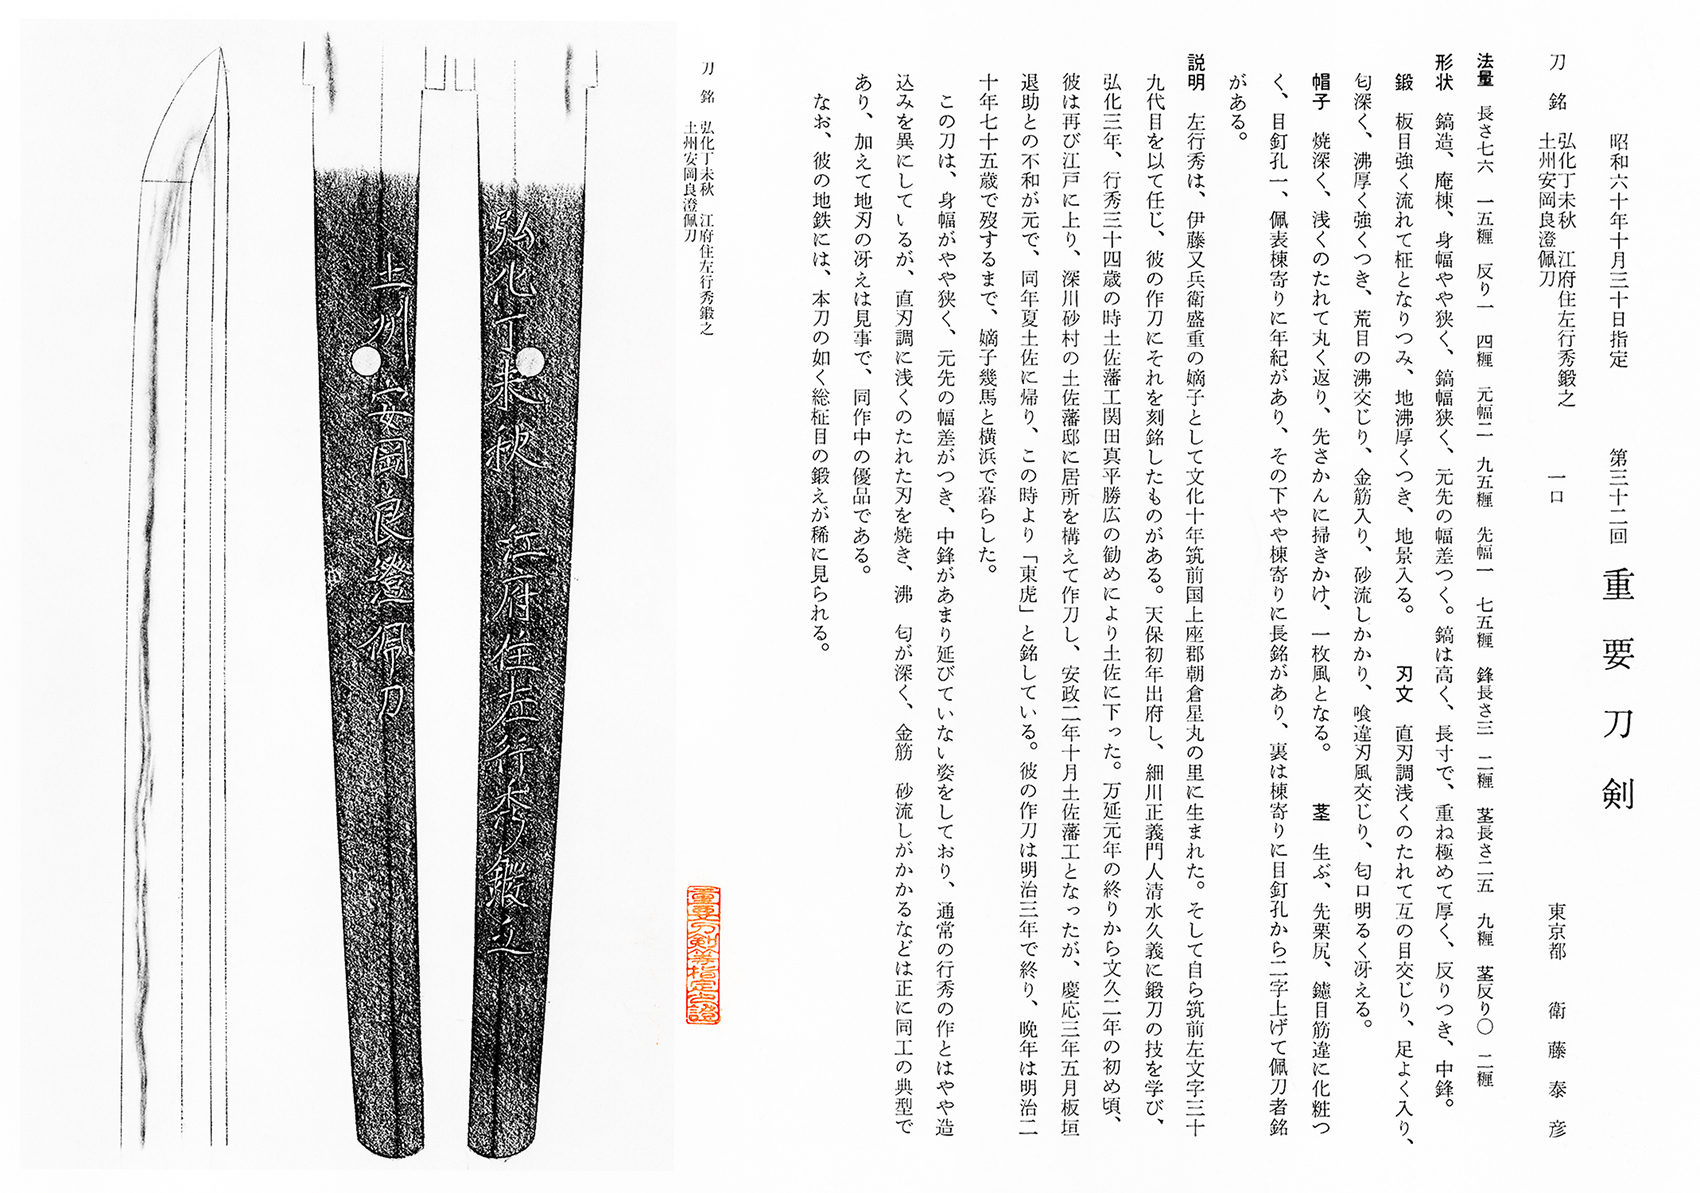 昭和六十年十月三十日指定　第三十二回　重要刀剣
刀　銘　弘化丁未秋　江府住左行秀鍛之
土州安岡良澄佩刀　一口　東京都　衛藤泰彦
法量　長さ七六　一五糎　反り一　四糎　元幅二　九五糎　先幅一　七五糎　鋒長さ三　二糎　茎長さ二五　九糎　茎反り〇　二糎
形状　鎬造、庵棟、身幅やや狭く、鎬幅狭く、元先の幅差つく。鎬は高く、長寸で、重ね極めて厚く、反りつき、中鋒。
鍛　板目強く流れて柾となりつみ、地沸厚くつき、地景入る。　刃文　直刃調浅くのたれて互の目交じり、足よく入り、
匂深く、沸厚く強くつき、荒目の沸交じり、金筋入り、砂流しかかり、喰違刃風交じり、匂口明るく冴える。
帽子　焼深く、浅くのたれて丸く返り、先さかんに掃きかけ、一枚風となる。　茎　生ぶ、先栗尻、鑢目筋違に化粧つ
く、目釘孔一、佩表棟寄りに年紀があり、その下やや棟寄りに長銘があり、裏は棟寄りに目釘孔から二字上げて佩刀者銘
がある。
説明　左行秀は、伊藤又兵衛盛重の嫡子として文化十年筑前国上座郡朝倉星丸の里に生まれた。そして自ら筑前左文字三十
九代目を以て任じ、彼の作刀にそれを刻銘したものがある。天保初年出府し、細川正義門人清水久義に鍛刀の技を学び、
弘化三年、行秀三十四歳の時土佐藩工関田真平勝広の勧めにより土佐に下った。万延元年の終りから文久二年の初め頃、
彼は再び江戸に上り、深川砂村の土佐藩邸に居所を構えて作刀し、安政二年十月土佐藩工となったが、慶応三年五月板垣
退助との不和が元で、同年夏土佐に帰り、この時より「東虎」と銘している。彼の作刀は明治三年で終り、晩年は明治二
十年七十五歳で歿するまで、嫡子幾馬と横浜で暮らした。
この刀は、身幅がやや狭く、元先の幅差がつき、中鋒があまり延びていない姿をしており、通常の行秀の作とはやや造
込みを異にしているが、直刃調に浅くのたれた刃を焼き、沸　匂が深く、金筋　砂流しがかかるなどは正に同工の典型で
あり、加えて地刃の冴えは見事で、同作中の優品である。
なお、彼の地鉄には、本刀の如く総柾目の鍛えが稀に見られる。
刀　銘　弘化丁未秋　江府住左行秀鍛之
土州安岡良澄佩刀
重要刀剣等指定之證
弘化丁未秋　江府住左行秀鍛之
土州安岡良澄佩刀